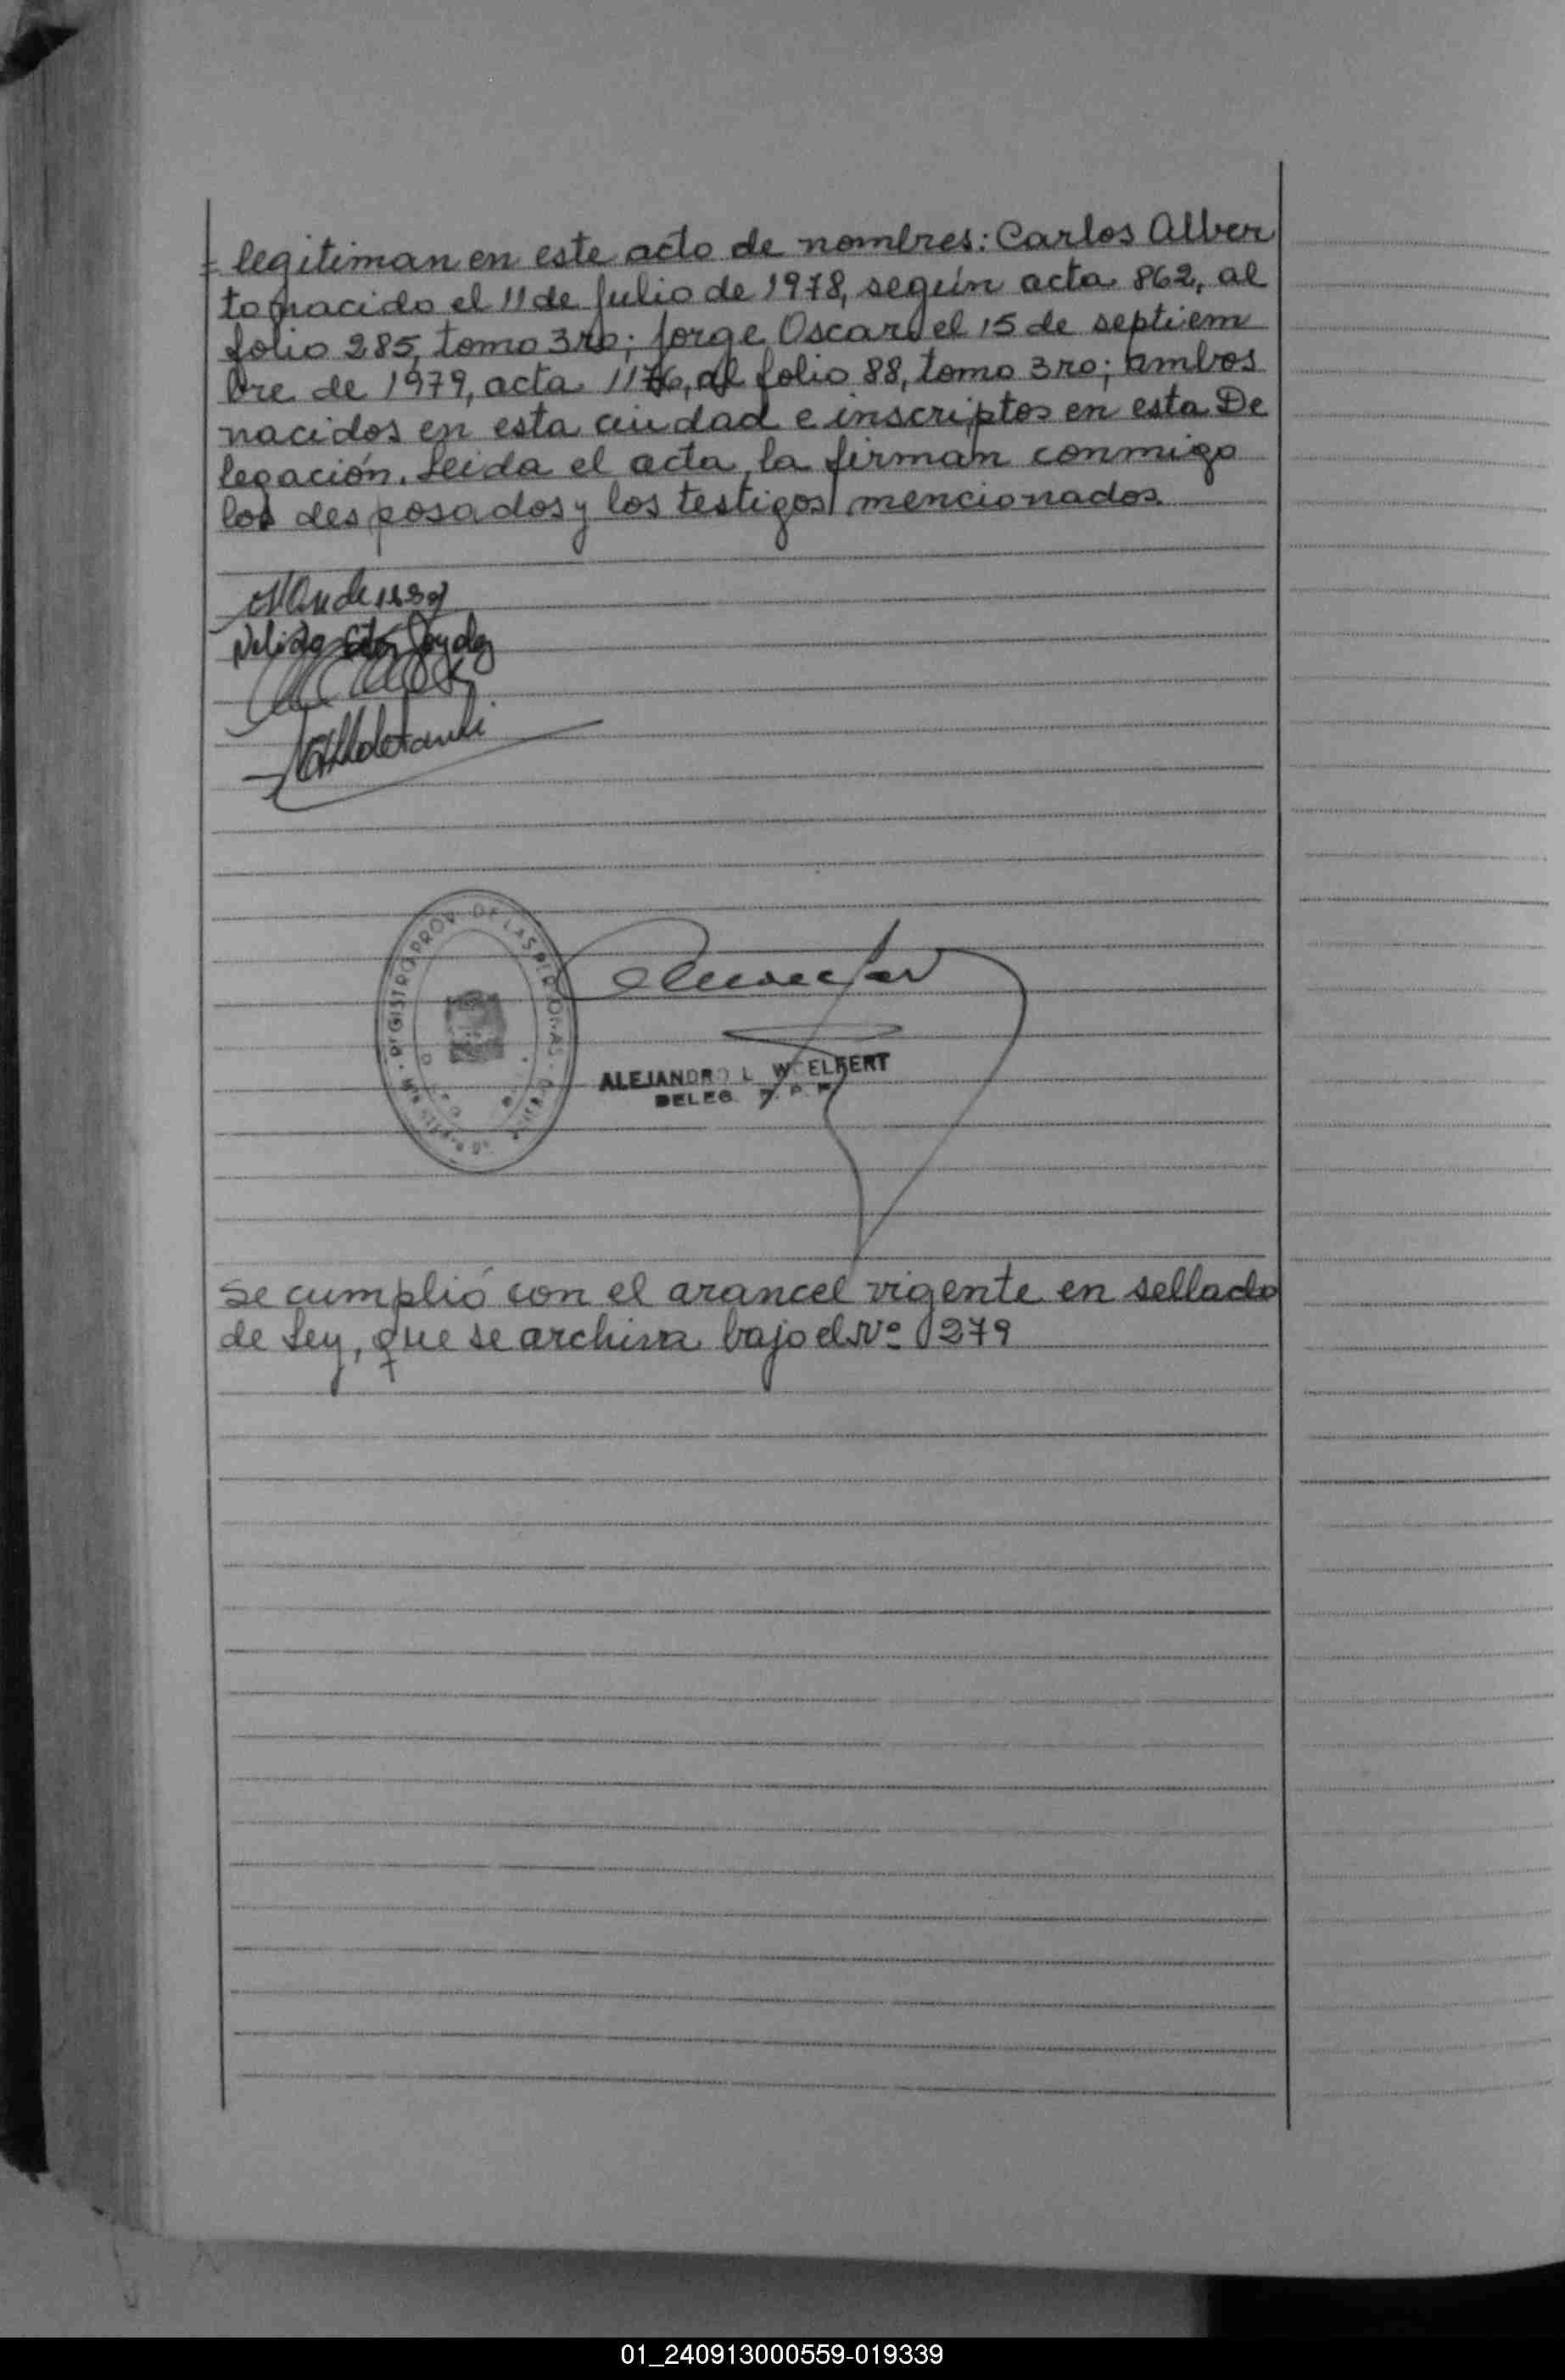 legitiman en este acto de nombres: Carlos Alber
to nacido el 11 de Julio de 1978, según acta 862, al
folio 285, tomo 3ro; Jorge Oscar el 15 de septiem
bre de 1979, acta 1176, al folio 88, tomo 3ro; ambos
nacidos en esta ciudad e inscriptos en esta De
legación. Leida el acta, la firman conmigo
los desposados y los testigos mencionados.
Nelida
REGISTRO PROV. DE LAS PERSONAS
ALEJANDRO L. WOELFERT
DELEG. R. P. P.
Se cumplió con el arancel vigente en sellado
de Ley, que se archiva bajo el Nº 279
01_240913000559-019339